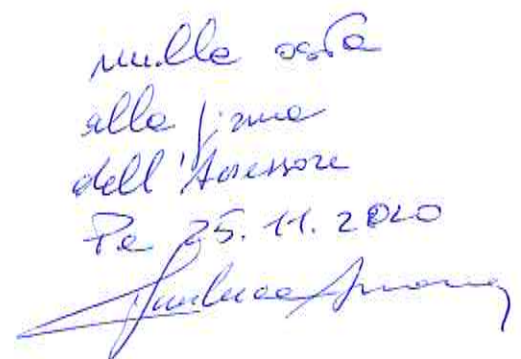 nulla osta
alla firma
dell'Assessore
Pa 25.11.2020
Gianluca